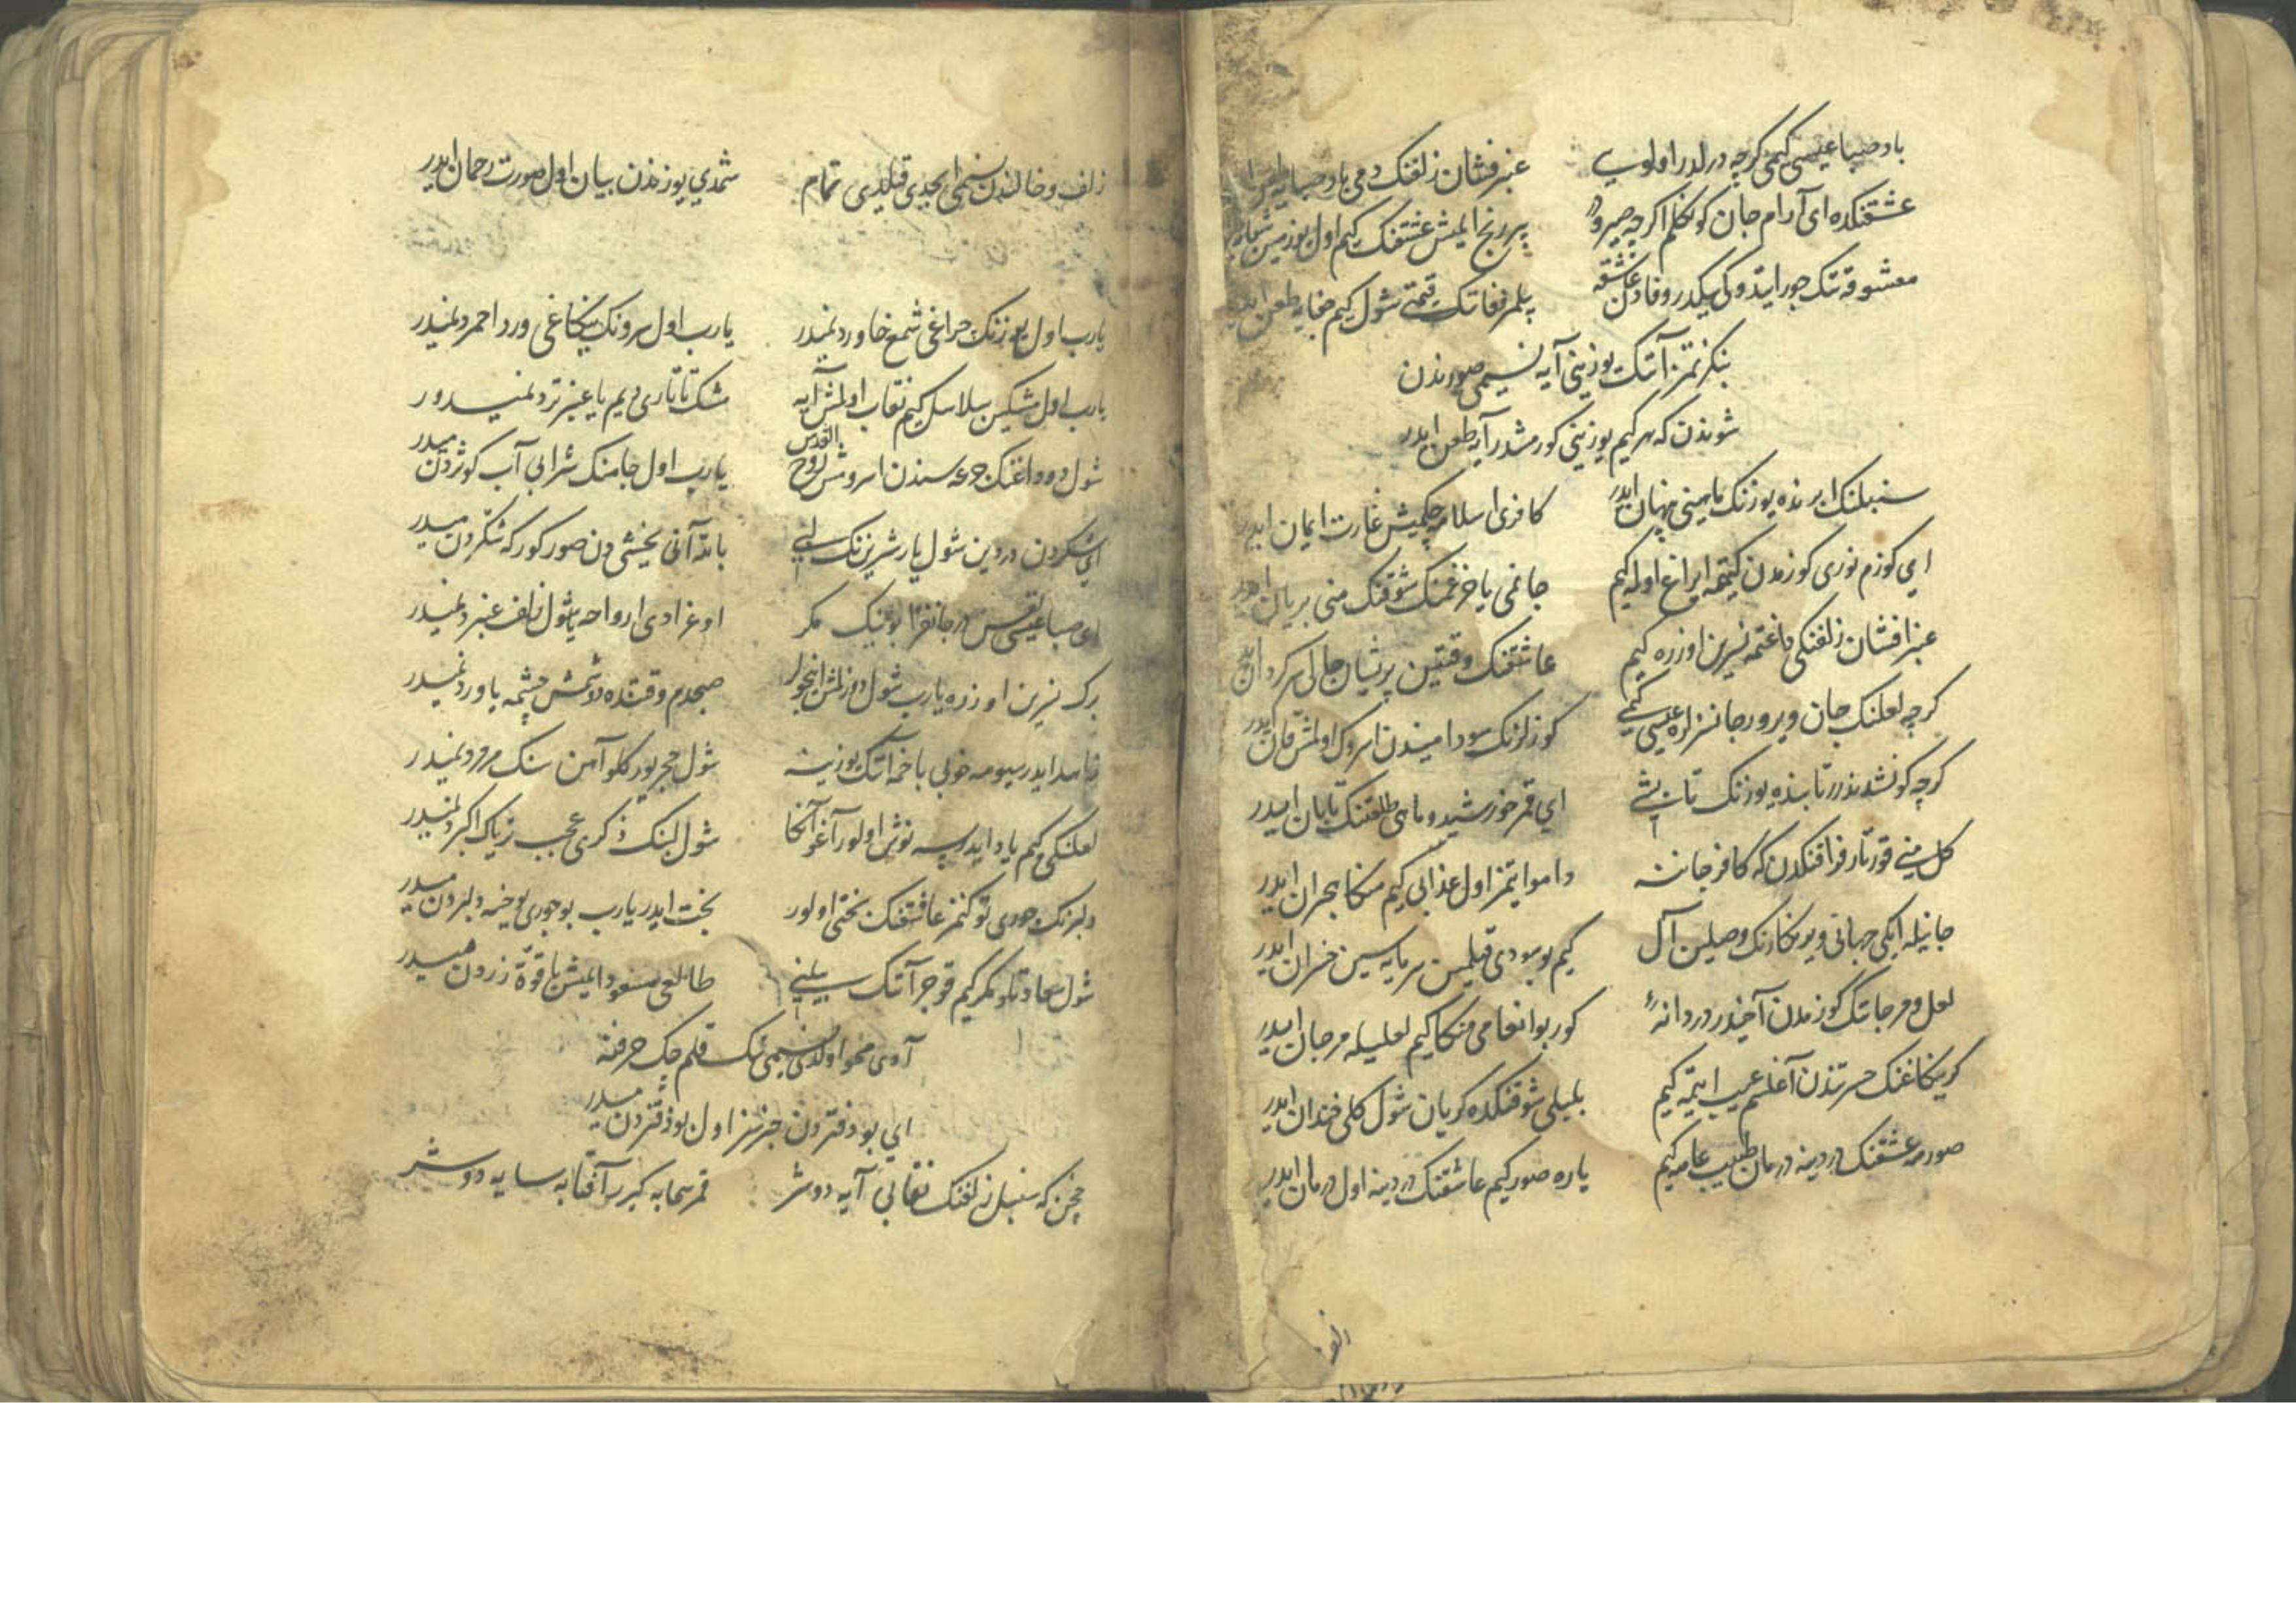 باد صبا عیسی کیمی کرچه در لدر اولوبی عنبر فشان زلفنک دمی باد صبایه
عشقنکده ای آرام جان کوکلم اکرچه صبر و بر رنج ایلمش عشقنک کیم اول یوز مین
معشوقه تنک جور ایتدوکی یکدر وفادن عاشقه بیلمز وفاتنک قیمتی شول کیم جفایه طعن ایدر
بنکزتمز آتنک یوزینی آیه نسیمی صورتدن
شوندن که هر کیم یوزینی کورمشدر آیه طعن ایدر
سنبلنک ابرنده یوزنک ماهینی پنهان ایدر کافری اسلامه چکمیش غارت ایمان ایدر
ای کوزم نوری کوزمدن کیتمه ایراغ اوله کیم جانمی یاخر غمنک شوقنک منی بریان ایدر
عنبر افشان زلفنکی طاغتمه نسرین اوزره کیم عاشقنک وقتین پریشان حالی سرکردان ایدر
کرچه لعلنک جان ویرور جانسزلره عیسی کیمی کوزلرنک سودامیندن اسروک اولمش قان ایدر
کرچه کونشدندر تابنده یوزنک تابشی ای قمر خورشید و ماهی طلعتنک تابان ایدر
کل منی قورتار فراقنکدن که کافر جاننه داموا یتمز اول عذابی کیم منکا هجران ایدر
جانیله ایکی جهانی ویر نکارنک وصلین آل کیم بو سودی قیلمین سرمایه سین خسران ایدر
لعل و مرجاننک کوزمدن آخیدر دردانه کور بو انعامی منکا کیم لعلیله مرجان ایدر
کر ینکاغنک حسرتندن آغلرم عیب ایتمه کیم بلبلی شوقنکده کریان شول کلی خندان ایدر
صورمه عشقنک دردینه درمان طبیب عامه کیم یاره صور کیم عاشقنک دردینه اول درمان ایدر
زلف و خالندن نسیمی ابجدی قیلدی تمام شمدی یوزندن بیان اول صورت رحمان ایدر
یارب اول یوزنک چراغی شمع خاوردنمیدر یارب اول سرونک ینکاغی ورد احمردنمیدر
یارب اول مشکین سلاسل کیم نقاب اولمش آیه مشک تاتاری دیم یا عنبر تردنمیدور
شول دوداغنک جرعه سندن اسرومش روح القدس یارب اول جامنک شرابی آب کوثردنمیدر
ای شکردن دردین شول یار شیرینک لبی بالله آنی یخشی دن صور کور که شکردنمیدر
ای صبا عیسی نفس در جانفزا بوینک مکر اوغرادی ارواحه یا شول زلف عنبردنمیدر
برک نسرین اوزره یارب شول دوزلمش انجولر صبحدم وقتنده دوشمش چشمه یا وردنمیدر
حاسد ایدرسومه خوبی باخمه آتنک یوزینه شول حجر یورکلو آهن سنک مرمردنمیدر
لعلنکی کیم یاد ایدرسه نوش اولور آغو آنکا شول لبنک ذکری عجب تریاک اکبردنمیدر
دلبرنک جوری توکنمز عاشقنک بختی اولور بخت ایدر یارب بو جوری یوخسه دلبردنمیدر
شول سعادتلو کمر کیم قوجر آتنک بیلینی طالعی مسعود ایمش یا قوه زردنمیدر
آدی محو اولدی نسیمی نک قلم چک حرفنه
ای بو دفتردن خبرسز اول بو دفتردنمیدر
چخن که سنبل زلفنک نقابی آیه دوشر قمر سحابه کیرر آفتابه سایه دوشر